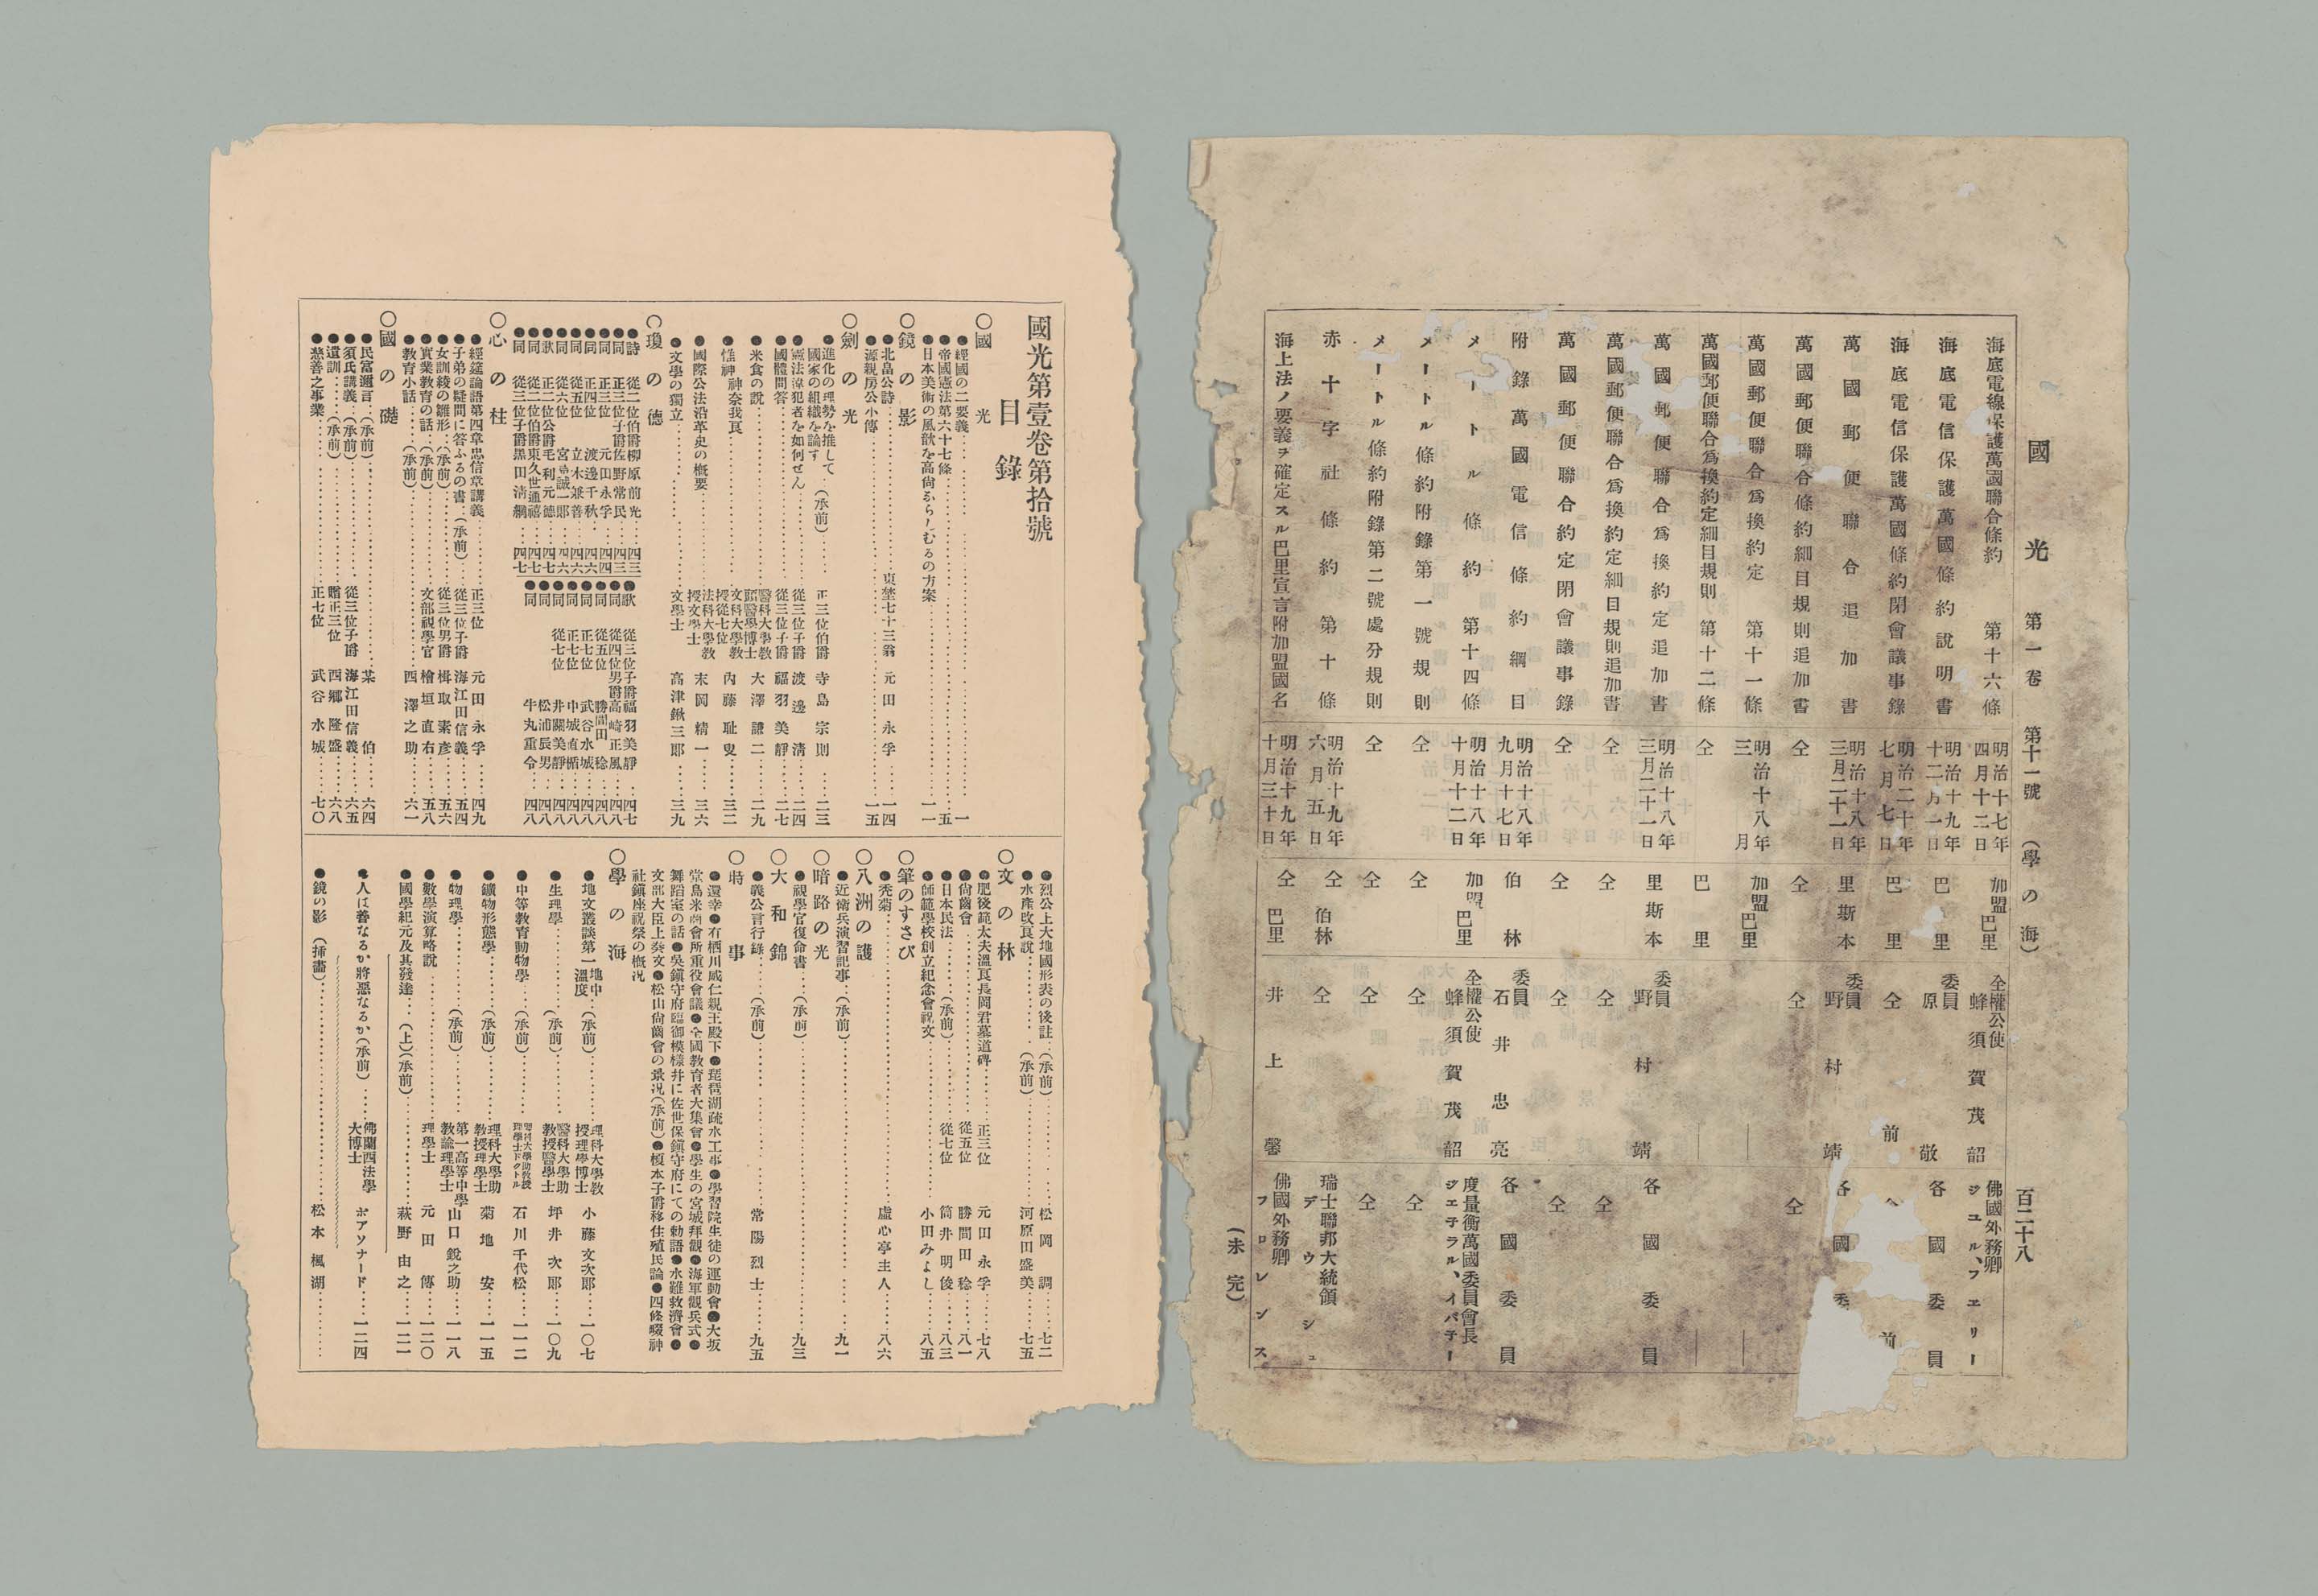 國光 第一卷 第十一號 (學の海) 百二十八
海底電線保護萬國聯合條約 第十六條 明治十七年四月十二日 加盟巴里 全權公使蜂須賀茂韶 佛國外務卿ジユル、フエリー
海底電信保護萬國條約說明書 明治十九年十二月一日 巴里 委員原敬 各國委員
海底電信保護萬國條約閉會議事錄 明治二十年七月七日 巴里 仝前 前
萬國郵便聯合追加書 明治十八年三月二十一日 里斯本 委員野村靖 各國委
萬國郵便聯合條約細目規則追加書 仝 仝 仝 仝
萬國郵便聯合爲換約定 第十一條 明治十八年三月 加盟巴里
萬國郵便聯合爲換約定細目規則 第十二條 仝 巴里
萬國郵便聯合爲換約定追加書 明治十八年三月二十一日 里斯本 委員野村靖 各國委員
萬國郵便聯合爲換約定細目規則追加書 仝 仝 仝 仝
萬國郵便聯合約定閉會議事錄 仝 仝 仝 仝
附錄萬國電信條約綱目 明治十八年九月十七日 伯林 委員石井忠亮 各國委員
メートル條約 第十四條 明治十八年十月十二日 加盟巴里 全權公使蜂須賀茂韶 度量衡萬國委員會長ジエテラル、イバチー
メートル條約附錄第一號規則 仝 仝 仝 仝
メートル條約附錄第二號處分規則 仝 仝 仝 仝
赤十字社條約 第十條 明治十九年六月五日 仝伯林 仝 瑞士聯邦大統領デウシュ
海上法ノ要義ヲ確定スル巴里宣言附加盟國名 明治十九年十月三十日 仝巴里 井上馨 佛國外務卿フロレンス
(未完)
國光第壹卷第拾號
目錄
○國光
●經國の二要義……一
●帝國憲法第六十七條……五
●日本美術の風猷を高尙ならしむるの方案……一一
○鏡の影
●北畠公詩……東埜七十三翁 元田永孚……一四
●源親房公小傳……一五
○劍の光
●進化の理勢を推して國家の組織を論す(承前)……正三位伯爵 寺島宗則……二三
●憲法違犯者を如何せん……從三位子爵 渡邊淸……二四
●國體問答……從三位子爵 福羽美靜……二七
●米食の說……醫科大學敎頭醫學博士 大澤謙二……二九
●惟神 神奈我良……文科大學敎授從七位 內藤耻叟……三二
●國際公法沿革史の槪要……法科大學敎授文學士 末岡精一……三六
●文學の獨立……文學士 高津鍬三郎……三九
○瓊の德
●詩 從二位伯爵柳原前光……四三
●同 正三位子爵佐野常民……四三
●同 正三位 元田永孚……四四
●同 正四位 渡邊千秋……四六
●同 從五位 立木兼善……四六
●同 從六位 宮島誠一郞……四六
●歌 正二位公爵毛利元德……四七
●同 從二位伯爵東久世通禧……四七
●同 從三位子爵黑田淸綱……四七
●歌 從三位子爵福羽美靜……四七
●同 從四位男爵高崎正風……四八
●同 從五位 勝間田稔……四八
●同 正七位 武谷水城……四八
●同 正七位 中城直楯……四八
●同 從七位 井關美靜……四八
●同 松浦辰男……四八
●同 牛丸重令……四八
○心の柱
●經筵論語第四章忠信章講義……正三位 元田永孚……四九
●子弟の疑問に答ふるの書…(承前)……從三位子爵 海江田信義……五四
●女訓綾の雛形…(承前)……從三位男爵 楫取素彥……五六
●實業敎育の話…(承前)……文部視學官 檜垣直右……五八
●敎育小話……(承前)……四澤之助……六一
○國の礎
●民富邇言…(承前)……某伯……六四
●須氏講義…(承前)……從三位子爵 海江田信義……六五
●遺訓……(承前)……贈正三位 西鄕隆盛……六八
●慈善之事業……正七位 武谷水城……七〇
●烈公上大地國形表の後註…(承前)……松岡調……七二
●水產改良說……(承前)……河原田盛美……七五
○文の林
●肥後範太夫溫良長岡君墓道碑……正三位 元田永孚……七八
●尙齒會……從五位 勝間田稔……八一
●日本民法……(承前)……從七位 筒井明俊……八三
●師範學校創立紀念會祝文……小田みよし……八五
○筆のすさび
●禿菊……盧心亭主人……八六
○八洲の護
●近衞兵演習記事…(承前)……九一
○暗路の光
●視學官復命書……(承前)……九三
○大和錦
●義公言行錄……(承前)……常陽烈士……九五
○時事
●還幸●有栖川威仁親王殿下●琵琶湖疏水工事●學習院生徒の運動會●大坂
堂島米商會所重役會議●全國敎育者大集會●學生の宮城拜觀●海軍觀兵式●
舞蹈室の話●吳鎭守府臨御模樣幷に佐世保鎭守府にての勅語●水難救濟會●
文部大臣上奏文●松山尙齒會の景况(承前)●榎本子爵移住殖民論●四條畷神
社鎭座祝祭の槪况
○學の海
●地文叢談第一 地中溫度…(承前)……理科大學敎授理學博士 小藤文次郞……一〇七
●生理學……(承前)……醫科大學助敎授醫學士 坪井次郞……一〇九
●中等敎育動物學…(承前)……理科大學助敎授理學士ドクトル 石川千代松……一一二
●鑛物形態學……(承前)……理科大學助敎授理學士 菊地安……一一五
●物理學……(承前)……第一高等中學敎諭理學士 山口銳之助……一一八
●數學演算略說……理學士 元田傳……一二〇
●國學紀元及其發達…(上)(承前)……萩野由之……一二一
●人は善なるか將惡なるか(承前)……佛蘭西法學大博士 ボアソナード……一二四
●鏡の影(挿畵)……松本楓湖……